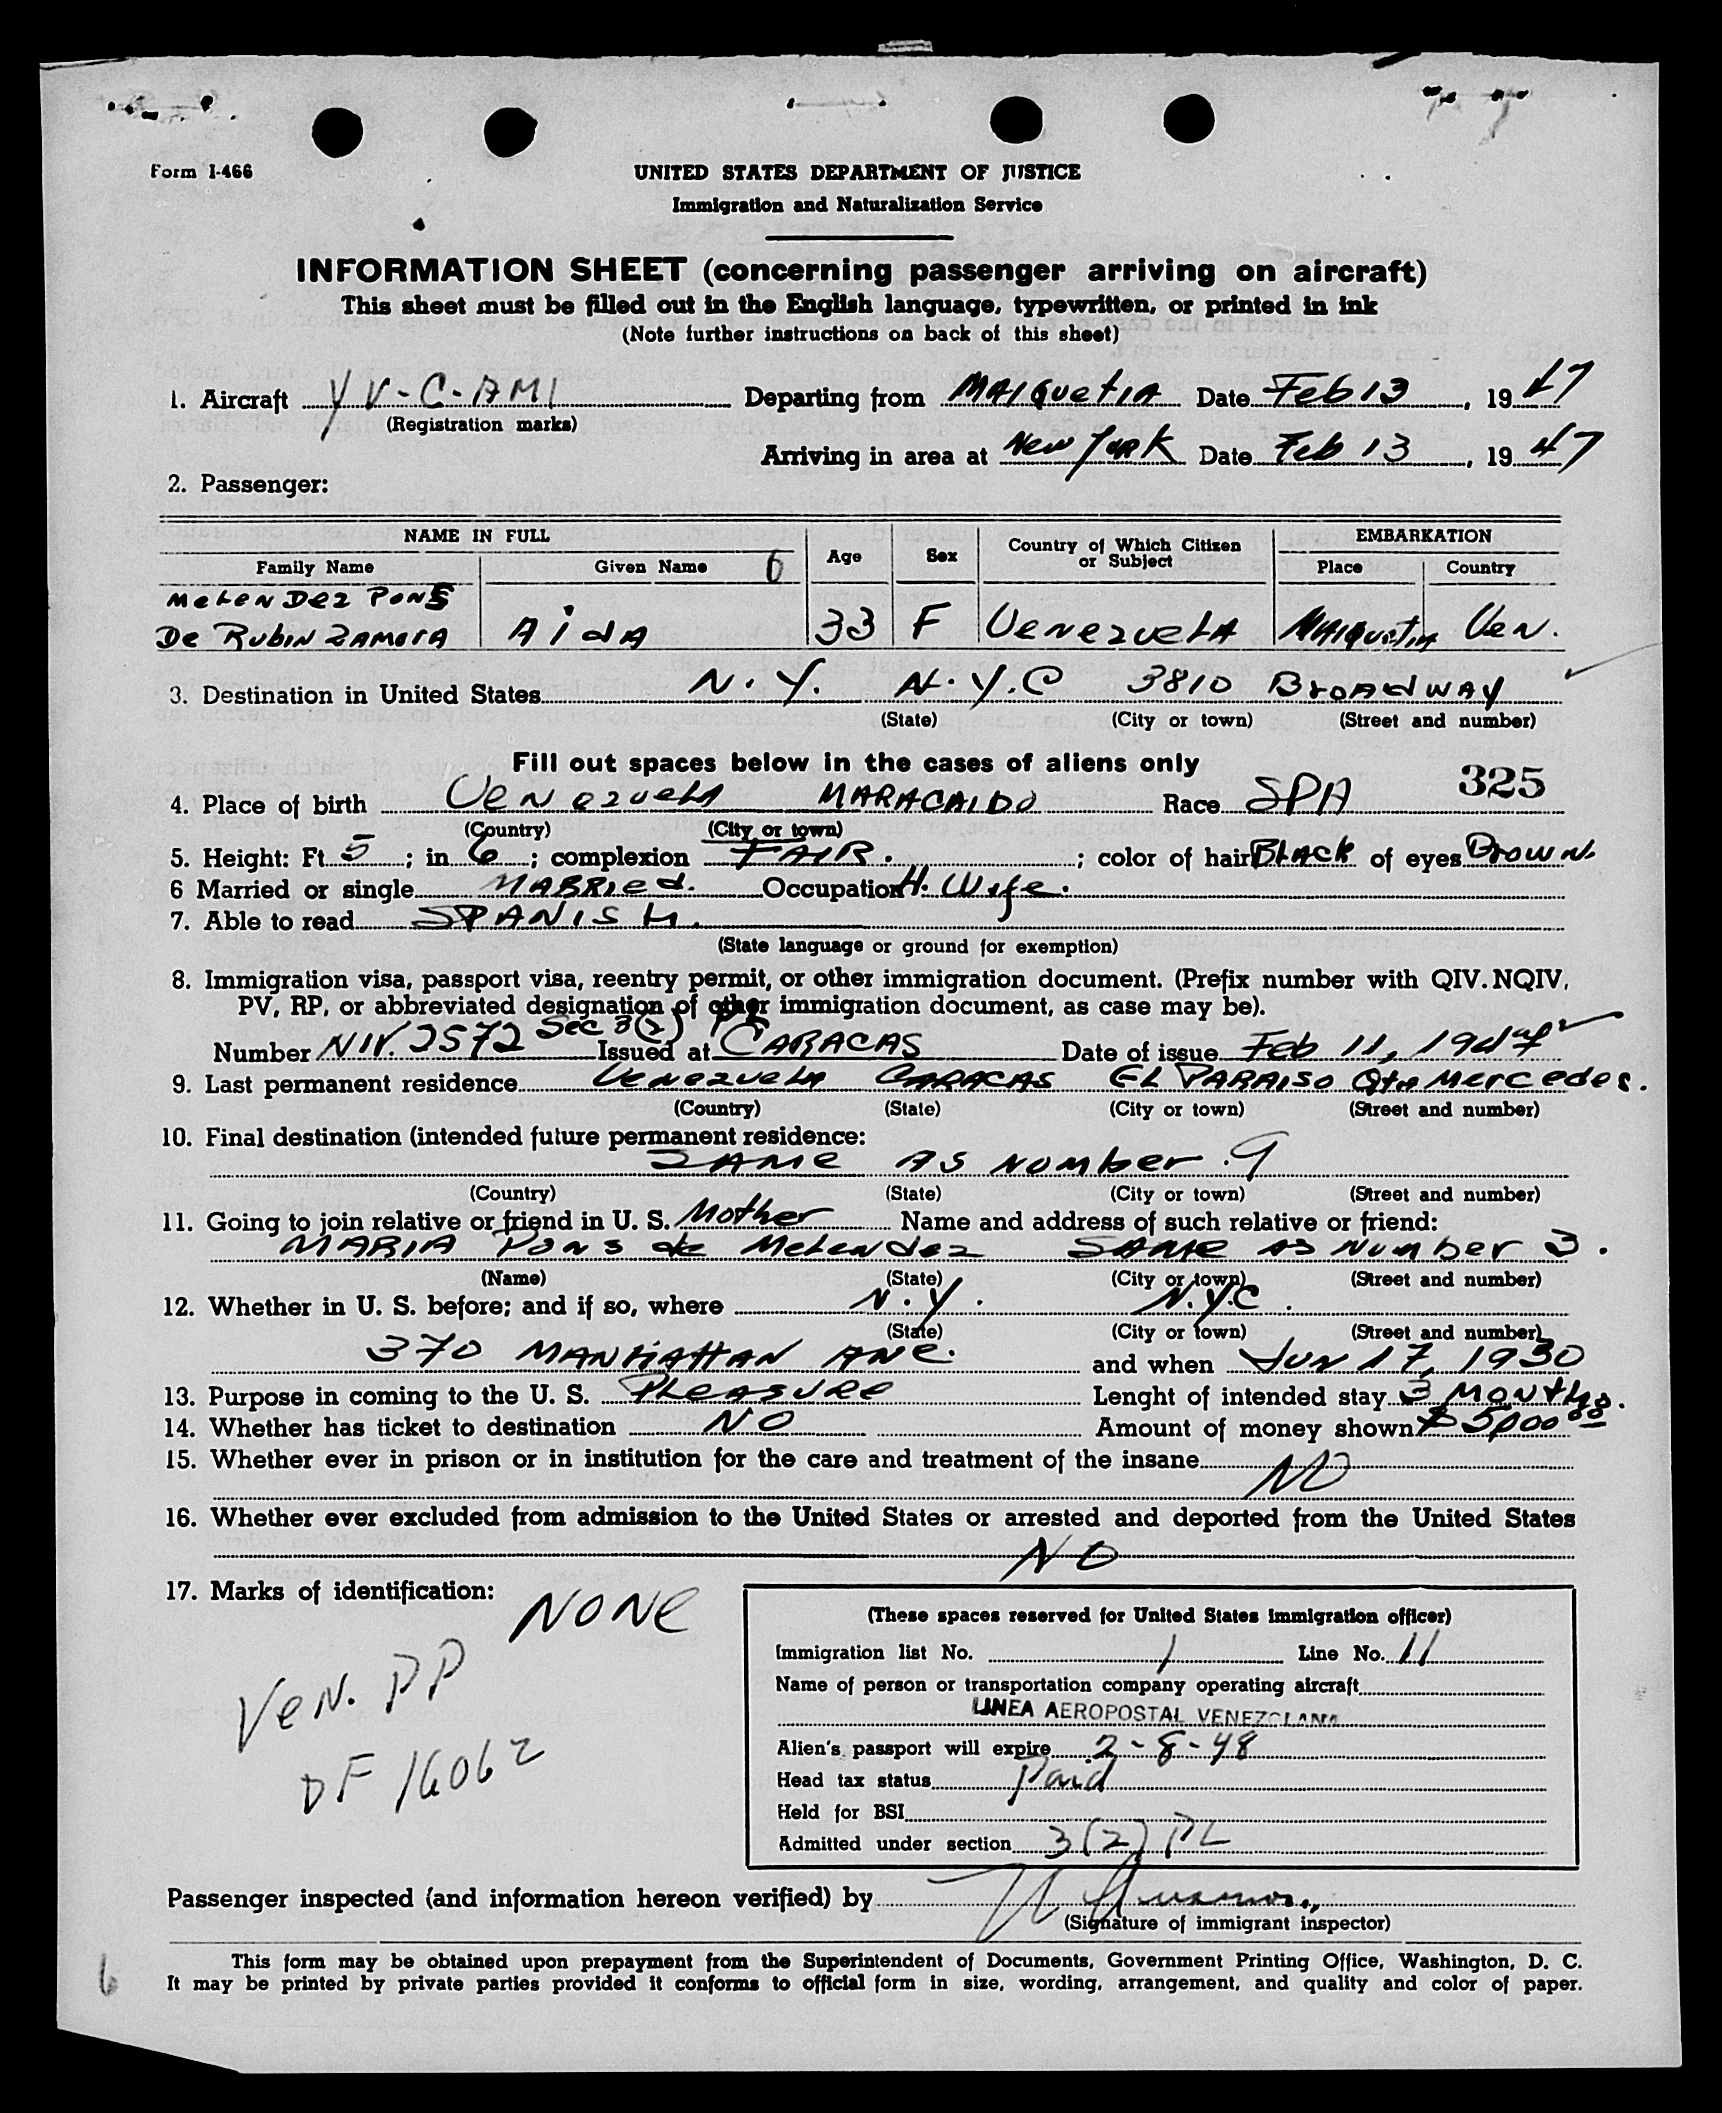 Form I-466
UNITED STATES DEPARTMENT OF JUSTICE
Immigration and Naturalization Service
INFORMATION SHEET (concerning passenger arriving on aircraft)
This sheet must be filled out in the English language, typewritten, or printed in ink
(Note further instructions on back of this sheet)
1. Aircraft YV-C-AMI Departing from MAIQuetIA Date Feb 13, 1947
(Registration marks)
Arriving in area at New York Date Feb 13, 1947
2. Passenger:
NAME IN FULL Age Sex Country of Which Citizen or Subject EMBARKATION
Family Name Given Name 6 Place Country
MeLenDez PonS
De RubIN ZAMorA AidA 33 F VenezueLA MAIQuetIA Ven.
3. Destination in United States N.Y. N.Y.C 3810 BroAdwAy
(State) (City or town) (Street and number)
Fill out spaces below in the cases of aliens only
325
4. Place of birth VenezueLA MARACAIbo Race SPA
(Country) (City or town)
5. Height: Ft. 5; in 6; complexion FAIR.; color of hair BLACK of eyes Brown.
6 Married or single MARRIed. Occupation H. Wife.
7. Able to read SPANISH.
(State language or ground for exemption)
8. Immigration visa, passport visa, reentry permit, or other immigration document. (Prefix number with QIV. NQIV,
PV, RP, or abbreviated designation of other immigration document, as case may be).
Number NIV. 2572 Sec 3(2) Issued at CARACAS Date of issue Feb 11, 1947
9. Last permanent residence VenezueLA CARACAS EL PARAISO Qta Mercedes.
(Country) (State) (City or town) (Street and number)
10. Final destination (intended future permanent residence:
SAMe AS Number 9
(Country) (State) (City or town) (Street and number)
11. Going to join relative or friend in U. S. Mother Name and address of such relative or friend:
MARIA Pons de MeLendez SAMe AS Number 3.
(Name) (State) (City or town) (Street and number)
12. Whether in U. S. before; and if so, where N.Y. N.Y.C.
(State) (City or town) (Street and number)
370 MANHATTAN AVe. and when Jun 17, 1930
13. Purpose in coming to the U. S. PLeASUre Lenght of intended stay 3 Months.
14. Whether has ticket to destination NO Amount of money shown $ 5,000 00
15. Whether ever in prison or in institution for the care and treatment of the insane NO
16. Whether ever excluded from admission to the United States or arrested and deported from the United States
NO
17. Marks of identification: NONE
Ven. PP
DF 16062
(These spaces reserved for United States immigration officer)
Immigration list No. 1 Line No. 11
Name of person or transportation company operating aircraft
LINEA AEROPOSTAL VENEZOLANA
Alien's passport will expire 2-8-48
Head tax status Paid
Held for BSI
Admitted under section 3(2) PL
Passenger inspected (and information hereon verified) by
(Signature of immigrant inspector)
This form may be obtained upon prepayment from the Superintendent of Documents, Government Printing Office, Washington, D. C.
It may be printed by private parties provided it conforms to official form in size, wording, arrangement, and quality and color of paper.
6